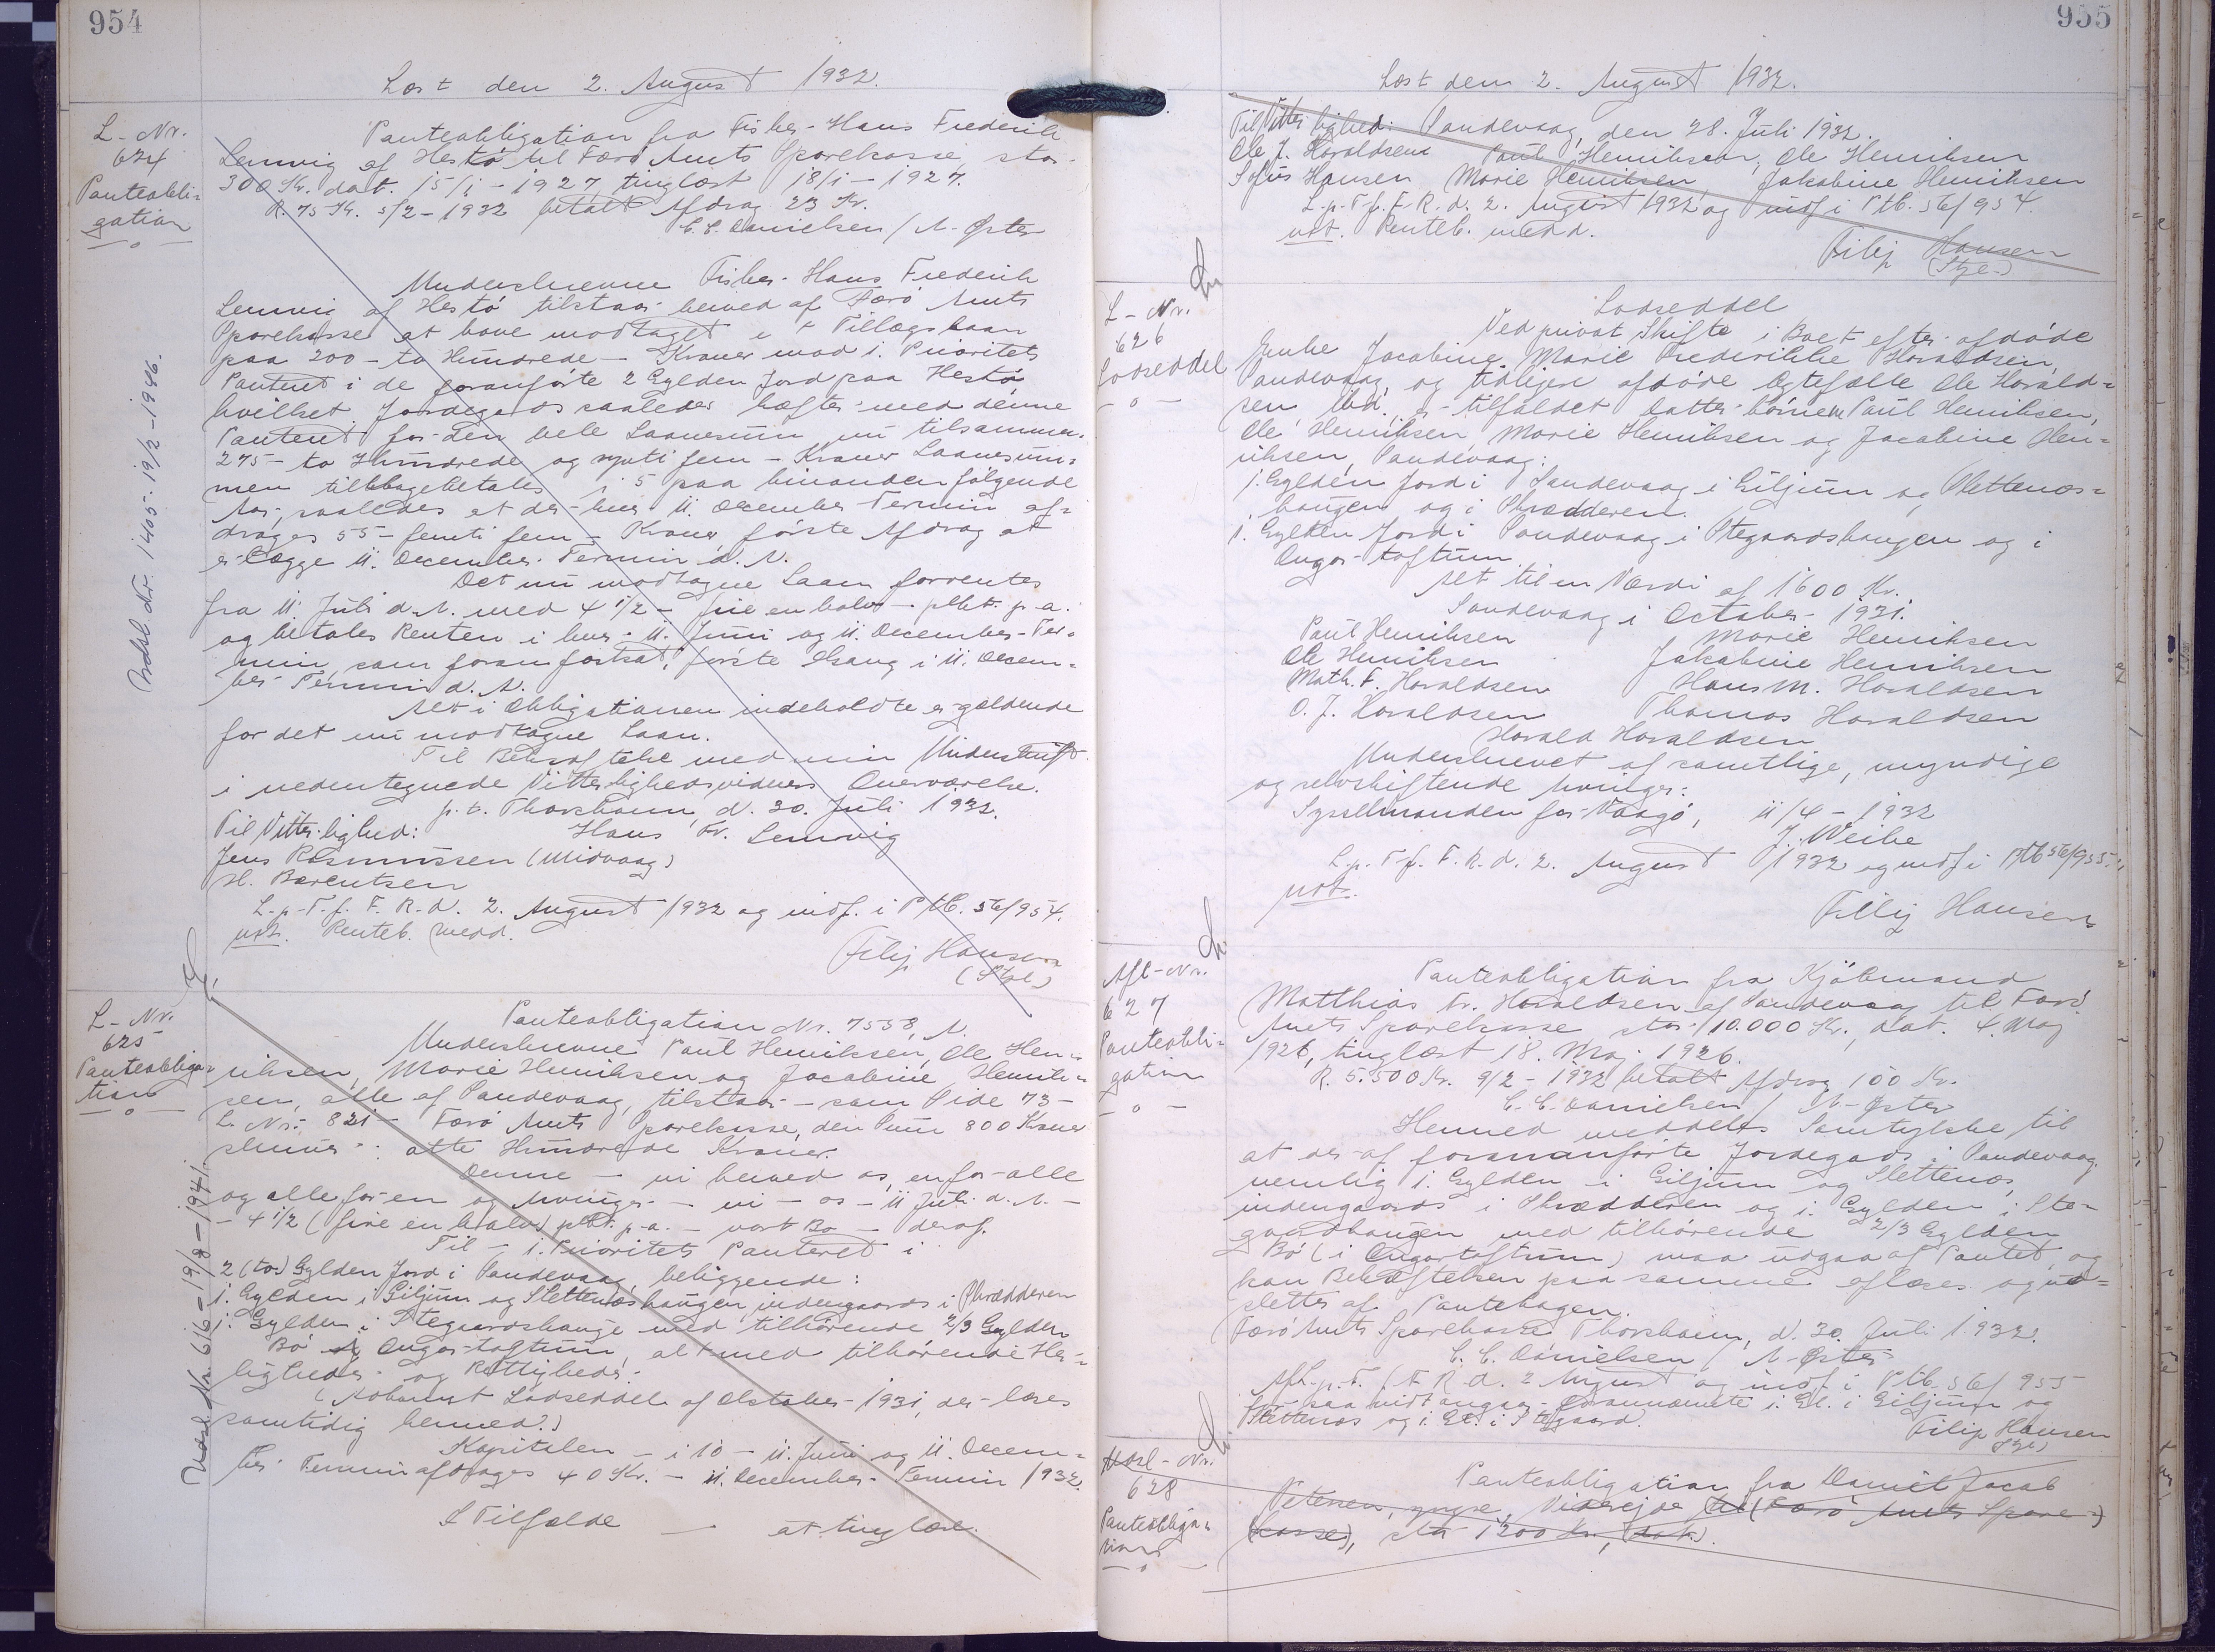 954
Læst den 2. August 1932.
L-Nr.
624
Panteobli-
gation
Panteobligation fra Fisker Hans Frederik
Lemvig af Hestø til Færø Amts Sparekasse, stor
300 Kr. dat. 15/1-1927 tinglæst 18/1-1927.
R. 75 Kr. 5/2-1932 betalt Afdrag 23 Kr.
C.C. Danielsen / A. Øster
Underskrevne Fisker Hans Frederik
Lemvig af Hestø tilstaar herved af Færø Amts
Sparekasse at have modtaget et Tillægslaan
paa 200 - to Hundrede - Kroner mod 1. Prioritets
Panteret i de foranførte 2 Gylden Jord paa Hestø
hvilket Jordegods saaledes hæfter med denne
Panteret for den hele Laanesum nu tilsammen
275 - to Hundrede og sytti fem - Kroner Laanesum-
men tilbagebetales i 5 paa hinanden følgende
Aar, saaledes at der hver 11. December Termin af-
drages 55 - femti fem - Kroner første Afdrag at
erlægge 11. December Termin d. A.
Det nu modtagne Laan forrentes
fra 11. Juli d. A. med 4 1/2 - fire en halv - pCt. p.a.
og betales Renten i hver 11. Juni og 11. December-Ter-
min, som foran fortsat, første Gang i 11. Decem-
ber Termin d. A.
Alt i Obligationen indeholdte er gældende
for det nu modtagne Laan.
Til Bekræftelse med min Underskrift
i nedentegnede Vitterlighedsvidners Overværelse.
p.t. Thorshavn, d. 30. Juli 1932.
Til Vitterlighed: Hans Fr. Lemvig
Jens Rasmussen (Midvaag)
H. Berentsen
L.p.T.f. F.R.d. 2. August 1932 og indf. i PtB. 56/954.
not. Renteb. medd.
Filip Hansen
(Stpl.)
Indsl. Nr. 1405-19/2-1946.
L-Nr.
625
Panteobliga-
tion
Panteobligation Nr. 7558, A.
Underskrevne Paul Henriksen, Ole Hen-
riksen, Marie Henriksen og Jacobine Henrik-
sen, alle af Sandevaag, tilstaar - som Side 73 -
L. Nr. 821 - Færø Amts Sparekasse, den Sum 800 Kroner
skriver: otte Hundrede Kroner.
Denne - vi herved os, en for alle
og alle for en og tvinges - vi - os - 11 Juli d. A. -
- 4 1/2 (fire en halv) pCt. p.a. - vort Bo - deraf.
Til - 1. Prioritets Panteret i
2 (to) Gylden Jord i Sandevaag, beliggende:
1. Gylden i Giljum og Slettenæshaugen indengaards i Skrædderen
1. Gylden i Stegaardshauge med tilhørende 2/3 Gylden
Bø i Ongartoftum, alt med tilhørende Her-
ligheder og Rettigheder.
(Adkomst Lodseddel af Oktober 1931, der læses
samtidig hermed.)
Kapitalen - i 10 - 11. Juni og 11. Decem-
ber Termin afdrages 40 Kr. - 11. December Termin 1932.
I Tilfælde - at tinglæse.
Udsl. Nr. 616-19/8-1941.
955
Læst den 2. August 1932.
Til Vitterlighed: Sandevaag, den 28. Juli 1932.
Ole J. Haraldsen Paul Henriksen, Ole Henriksen
Sofus Hansen Marie Henriksen, Jakobine Henriksen
L.p.T.f. F.R.d. 2. August 1932 og indf. i PtB. 56/954.
not. Renteb. medd.
Filip Hansen
(Stpl.)
L-Nr.
626
Lodseddel
Lodseddel
Ved privat Skifte i Boet efter afdøde
Enke Jacobine Marie Frederikke Haraldsen,
Sandevaag, og tidligere afdøde Ægtefælle Ole Harald-
sen ibd. er tilfaldet Datter-børnene Paul Henriksen,
Ole Henriksen, Marie Henriksen og Jacobine Hen-
riksen, Sandevaag:
1. Gylden Jord i Sandevaag i Giljum og Slettenæs-
haugen og i Skrædderen.
1. Gylden Jord i Sandevaag i Stegaardshaugen og i
Ongartoftum
Alt til en Værdi af 1600 Kr.
Sandevaag i October 1931.
Paul Henriksen Marie Henriksen
Ole Henriksen Jakobine Henriksen
Math. F. Haraldsen Hans M. Haraldsen
O. J. Haraldsen Thomas Haraldsen
Harald Haraldsen
Underskrevet af samtlige, myndige
og selvskiftende Arvinger:
Sysselmanden for Vaagø, 11/4-1932
J. Weihe
L.p.T.f. F.R.d. 2. August 1932 og indf. i PtB 56/955.
not.
Filip Hansen
Afl-Nr.
627
Panteobli-
gation
Panteobligation fra Kjøbmand
Matthias Fr. Haraldsen af Sandevaag til Færø
Amts Sparekasse stor 10.000 Kr., dat. 4. Maj
1926, tinglæst 18. Maj 1926.
R. 5.500 Kr. 9/2-1932 betalt Afdrag 100 Kr.
C.C. Danielsen / A. Øster
Hermed meddeles Samtykke til
at der af forannanførte Jordegods i Sandevaag,
nemlig 1. Gylden i Giljum og Slettenæs,
indengaards i Skrædderen og 1. Gylden i Ste-
gaardhaugen med tilhørende 2/3 Gylden
Bø (i Ongartoftum) maa udgaa af Pantet, og
kan Behæftelsen paa samme aflæses og ud-
slettes af Pantebogen.
Færø Amts Sparekasse Thorshavn, d. 30. Juli 1932.
C.C. Danielsen / A. Øster
Afl.p.T.f. F.R.d. 2 August og indf. i PtB. 56/955
for saa vidt angaar forannævnte 1. Gl. i Giljum og
Slettenæs og 1. Gl. i Stegaard.
Filip Hansen
Stpl.)
628
Panteobliga-
tion
Panteobligation fra Daniel Jacob
Petersen, yngre, Viderejde til (Færø Amts Spare-)
(kasse), stor 1200 Kr., (dat.).